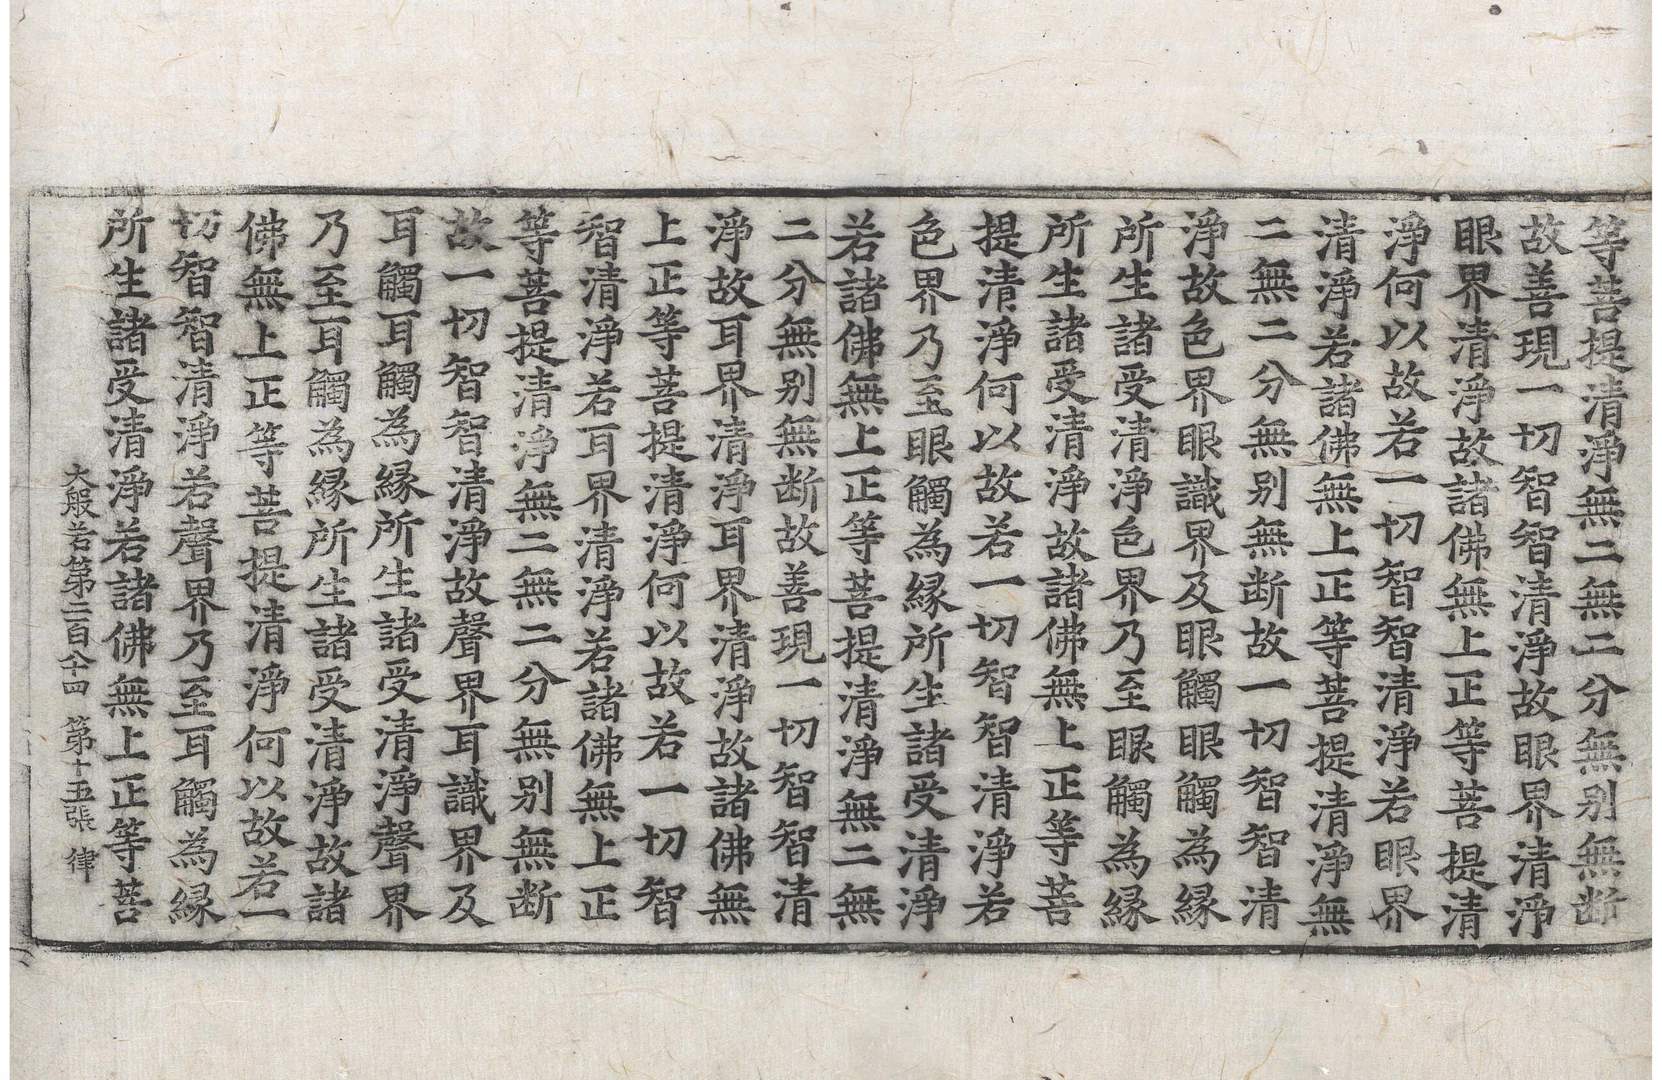 等菩提清淨無二無二分無別無断
故善現一切智智清淨故眼界清淨
眼界清淨故諸佛無上正等菩提清
淨何以故若一切智智清淨若眼界
清淨若諸佛無上正等菩提清淨無
二無二分無別無断故一切智智清
淨故色界眼識界及眼觸眼觸為縁
所生諸受清淨色界乃至眼觸為縁
所生諸受清淨故諸佛無上正等菩
提清淨何以故若一切智智清淨若
色界乃至眼觸為縁所生諸受清淨
若諸佛無上正等菩提清淨無二無
二分無別無断故善現一切智智清
淨故耳界清淨耳界清淨故諸佛無
上正等菩提清淨何以故若一切智
智清淨若耳界清淨若諸佛無上正
等菩提清淨無二無二分無別無断
故一切智智清淨故聲界耳識界及
耳觸耳觸為縁所生諸受清淨聲界
乃至耳觸為縁所生諸受清淨故諸
佛無上正等菩提清淨何以故若一
切智智清淨若聲界乃至耳觸為縁
所生諸受清淨若諸佛無上正等菩
大般若第二百八十四 第十五張 律